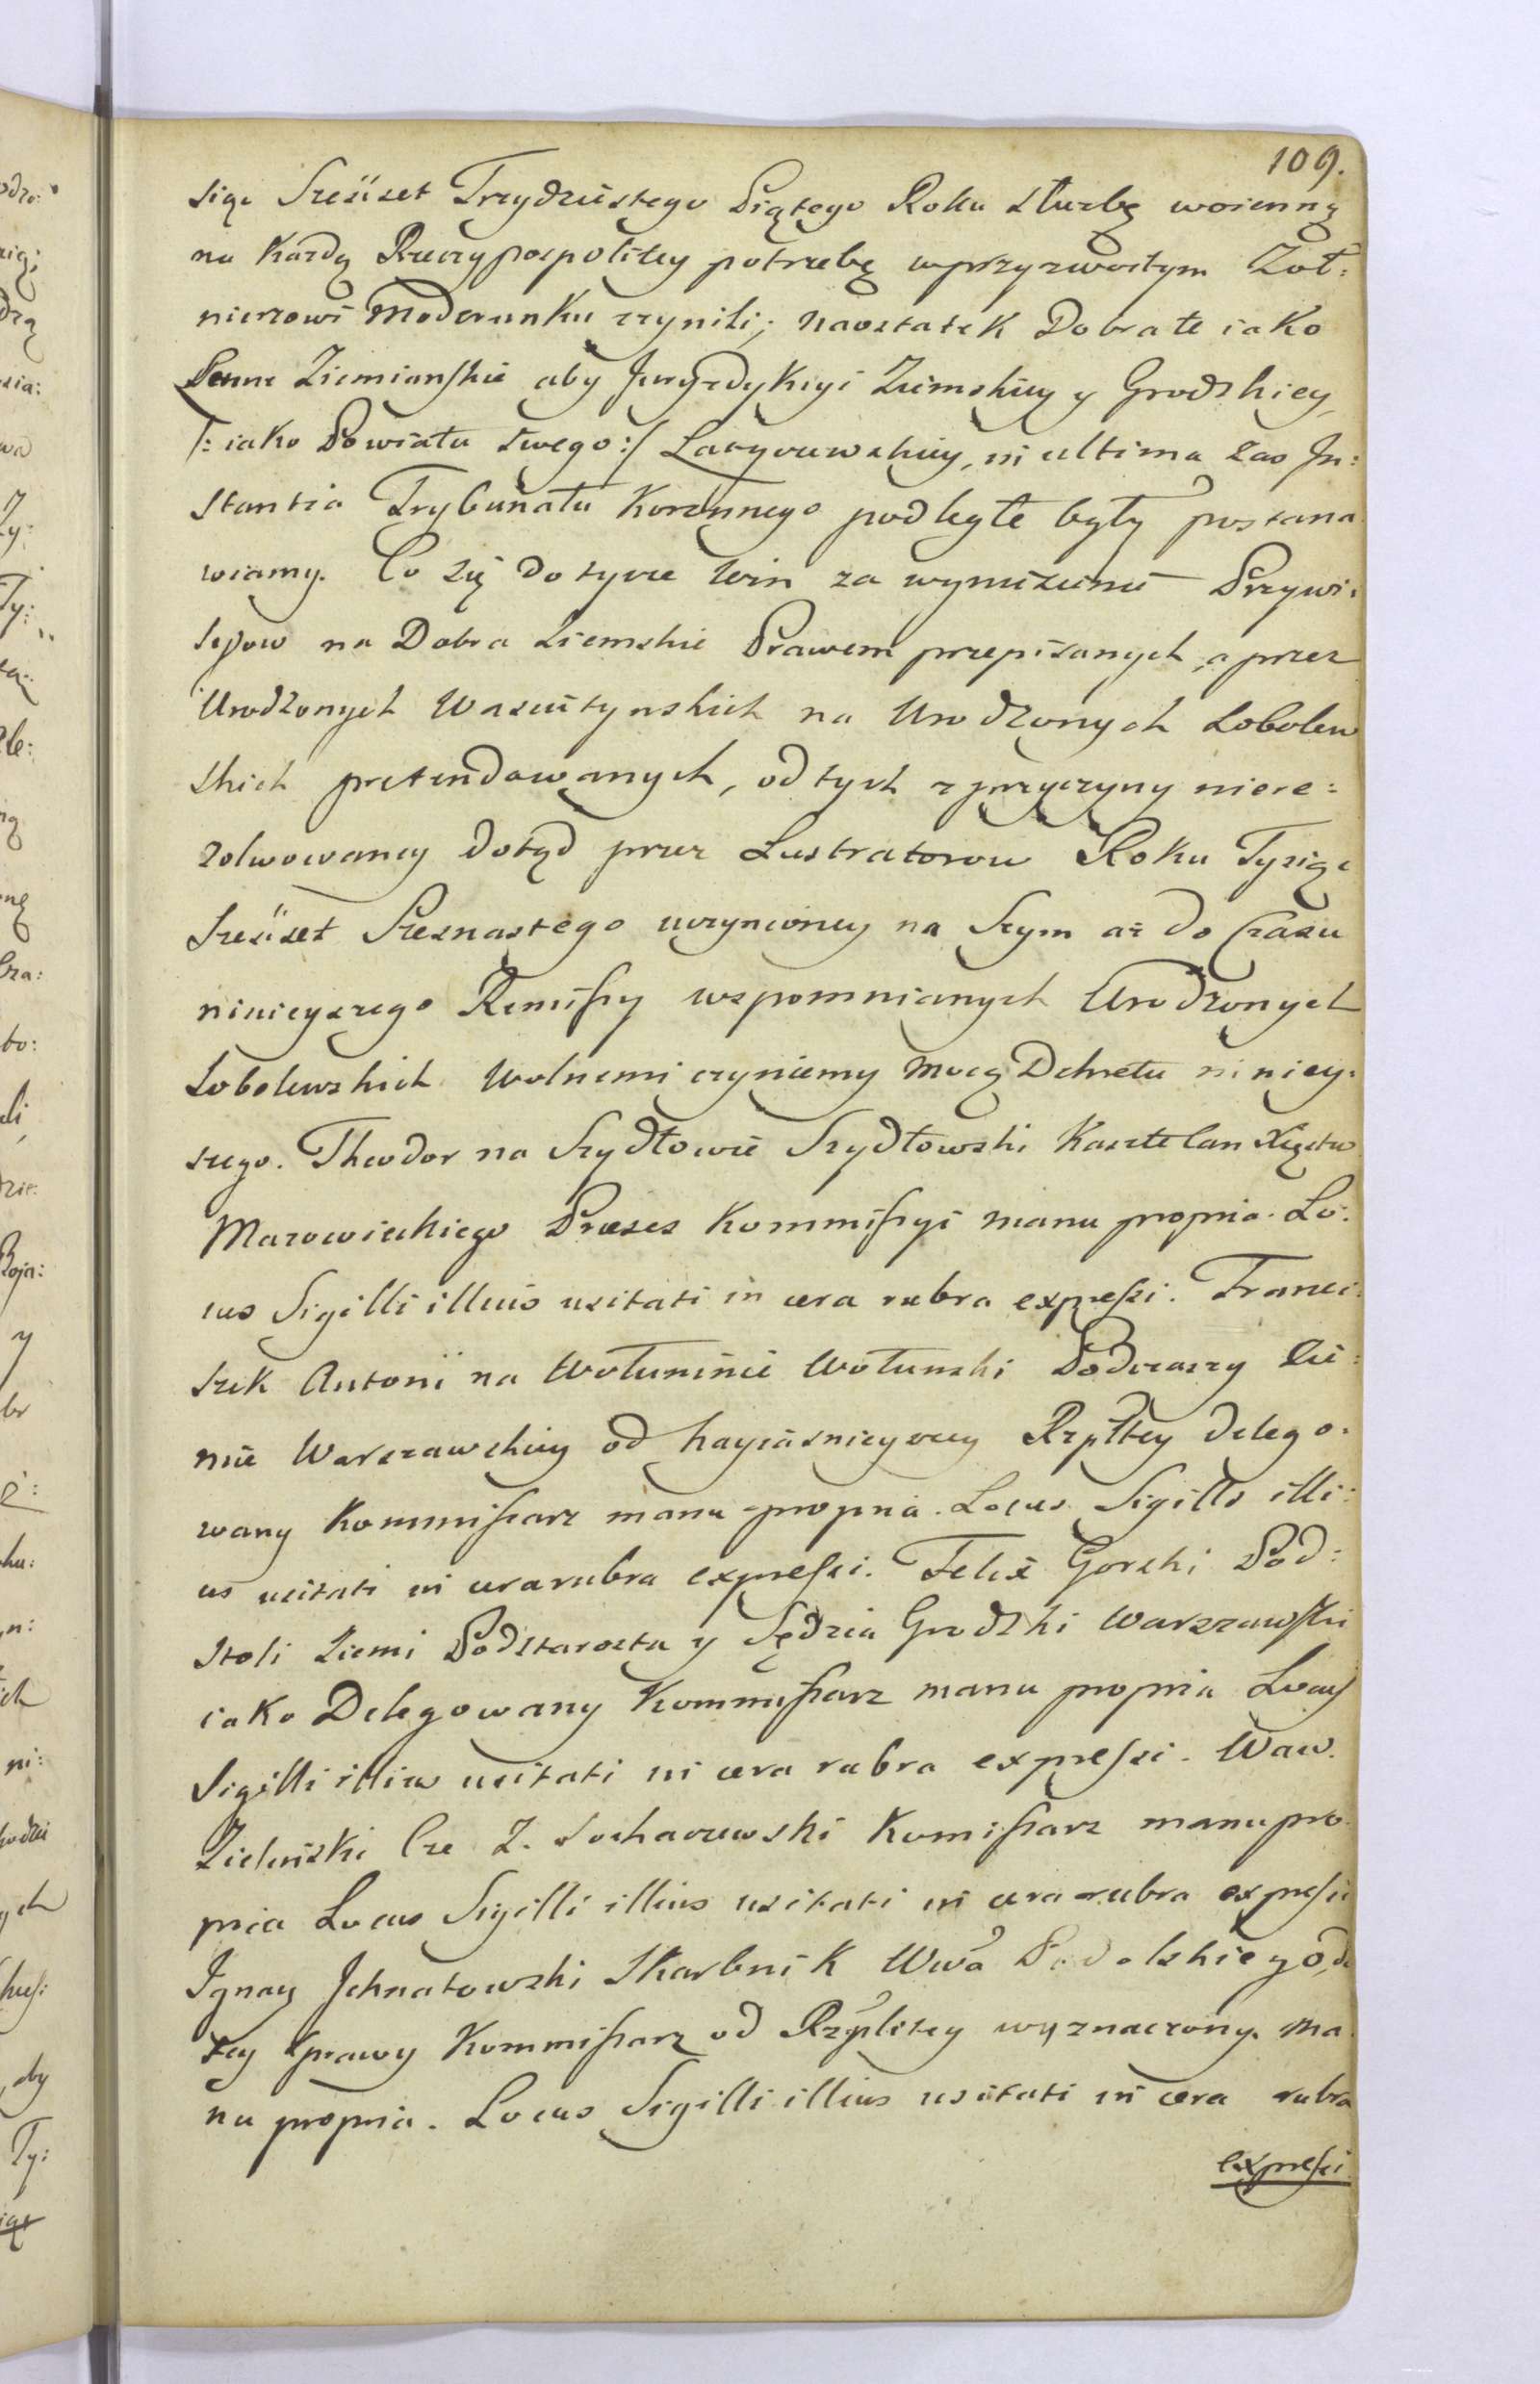 109.
siąc Sześćset Trzydziestego Piątego Roku służbę woienną
na Każdą Rzeczypospolitey potrzebę w przyzwoitym Żoł:
nierzowi Moderunku czynili; naostatek Dobra te iako
Ziemianskie aby Juryzdykcyi Ziemskiey y Grodzkiey,
/: iako Powiatu swego :/ w ultima zas In:
stantia Trybunału Koronnego podległe były postana
wiamy. Co się dotycze Win za wyniesienie Przywi:
lejow na Dobra Ziemskie Prawem przepisanych, a przez
Urodzonych Wasiutynskich na Urodzonych Sobolew
skich pretendowanych, od tych z przyczyny niere:
zolwowaney dotąd przez Lustratorow Roku Tysiąc
Sześćset Szesnastego uczynioney na Seym aż do Czasu
ninieyszego Remissy wspomnianych Urodzonych
Sobolewskich Wolnemi czyniemy mocą Dekretu niniey:
szego. Theodor na Szydłowie Szydłowski Kasztelan Xięstwa
Mazowieckiego Prezes Kommissyi manu propria. Lo:
cus Sigilli illius usitati in cera rubra expressi. Franci:
szek Antoni na Wołuminie Wołunski Podczaszy Zie:
mie Warszawskiey od Nayiasnieyszey Rzpltey delego:
wany Kommissarz manu propria. Locus Sigilli illi:
us usitati in cera rubra expressi. Felix Gorski Pod:
stoli Ziemi Podstarosta y Sędzia Grodzki Warszawski
iako Delegowany Kommissarz manu propria Locus
Sigilli illius usitati in cera rubra expressi. Waw.
Zielinski Cze Z. Sochaczewski Komissarz manu pro
pria Locus Sigilli illius usitati in cera rubra expressi
Ignacy Jchnatowski Skarbnik Wwa Podolskiego, do
tey sprawy Kommissarz od Rzplitey wyznaczony. Ma
nu propria. Locus Sigilli illius usitati in cera rubra
expressi